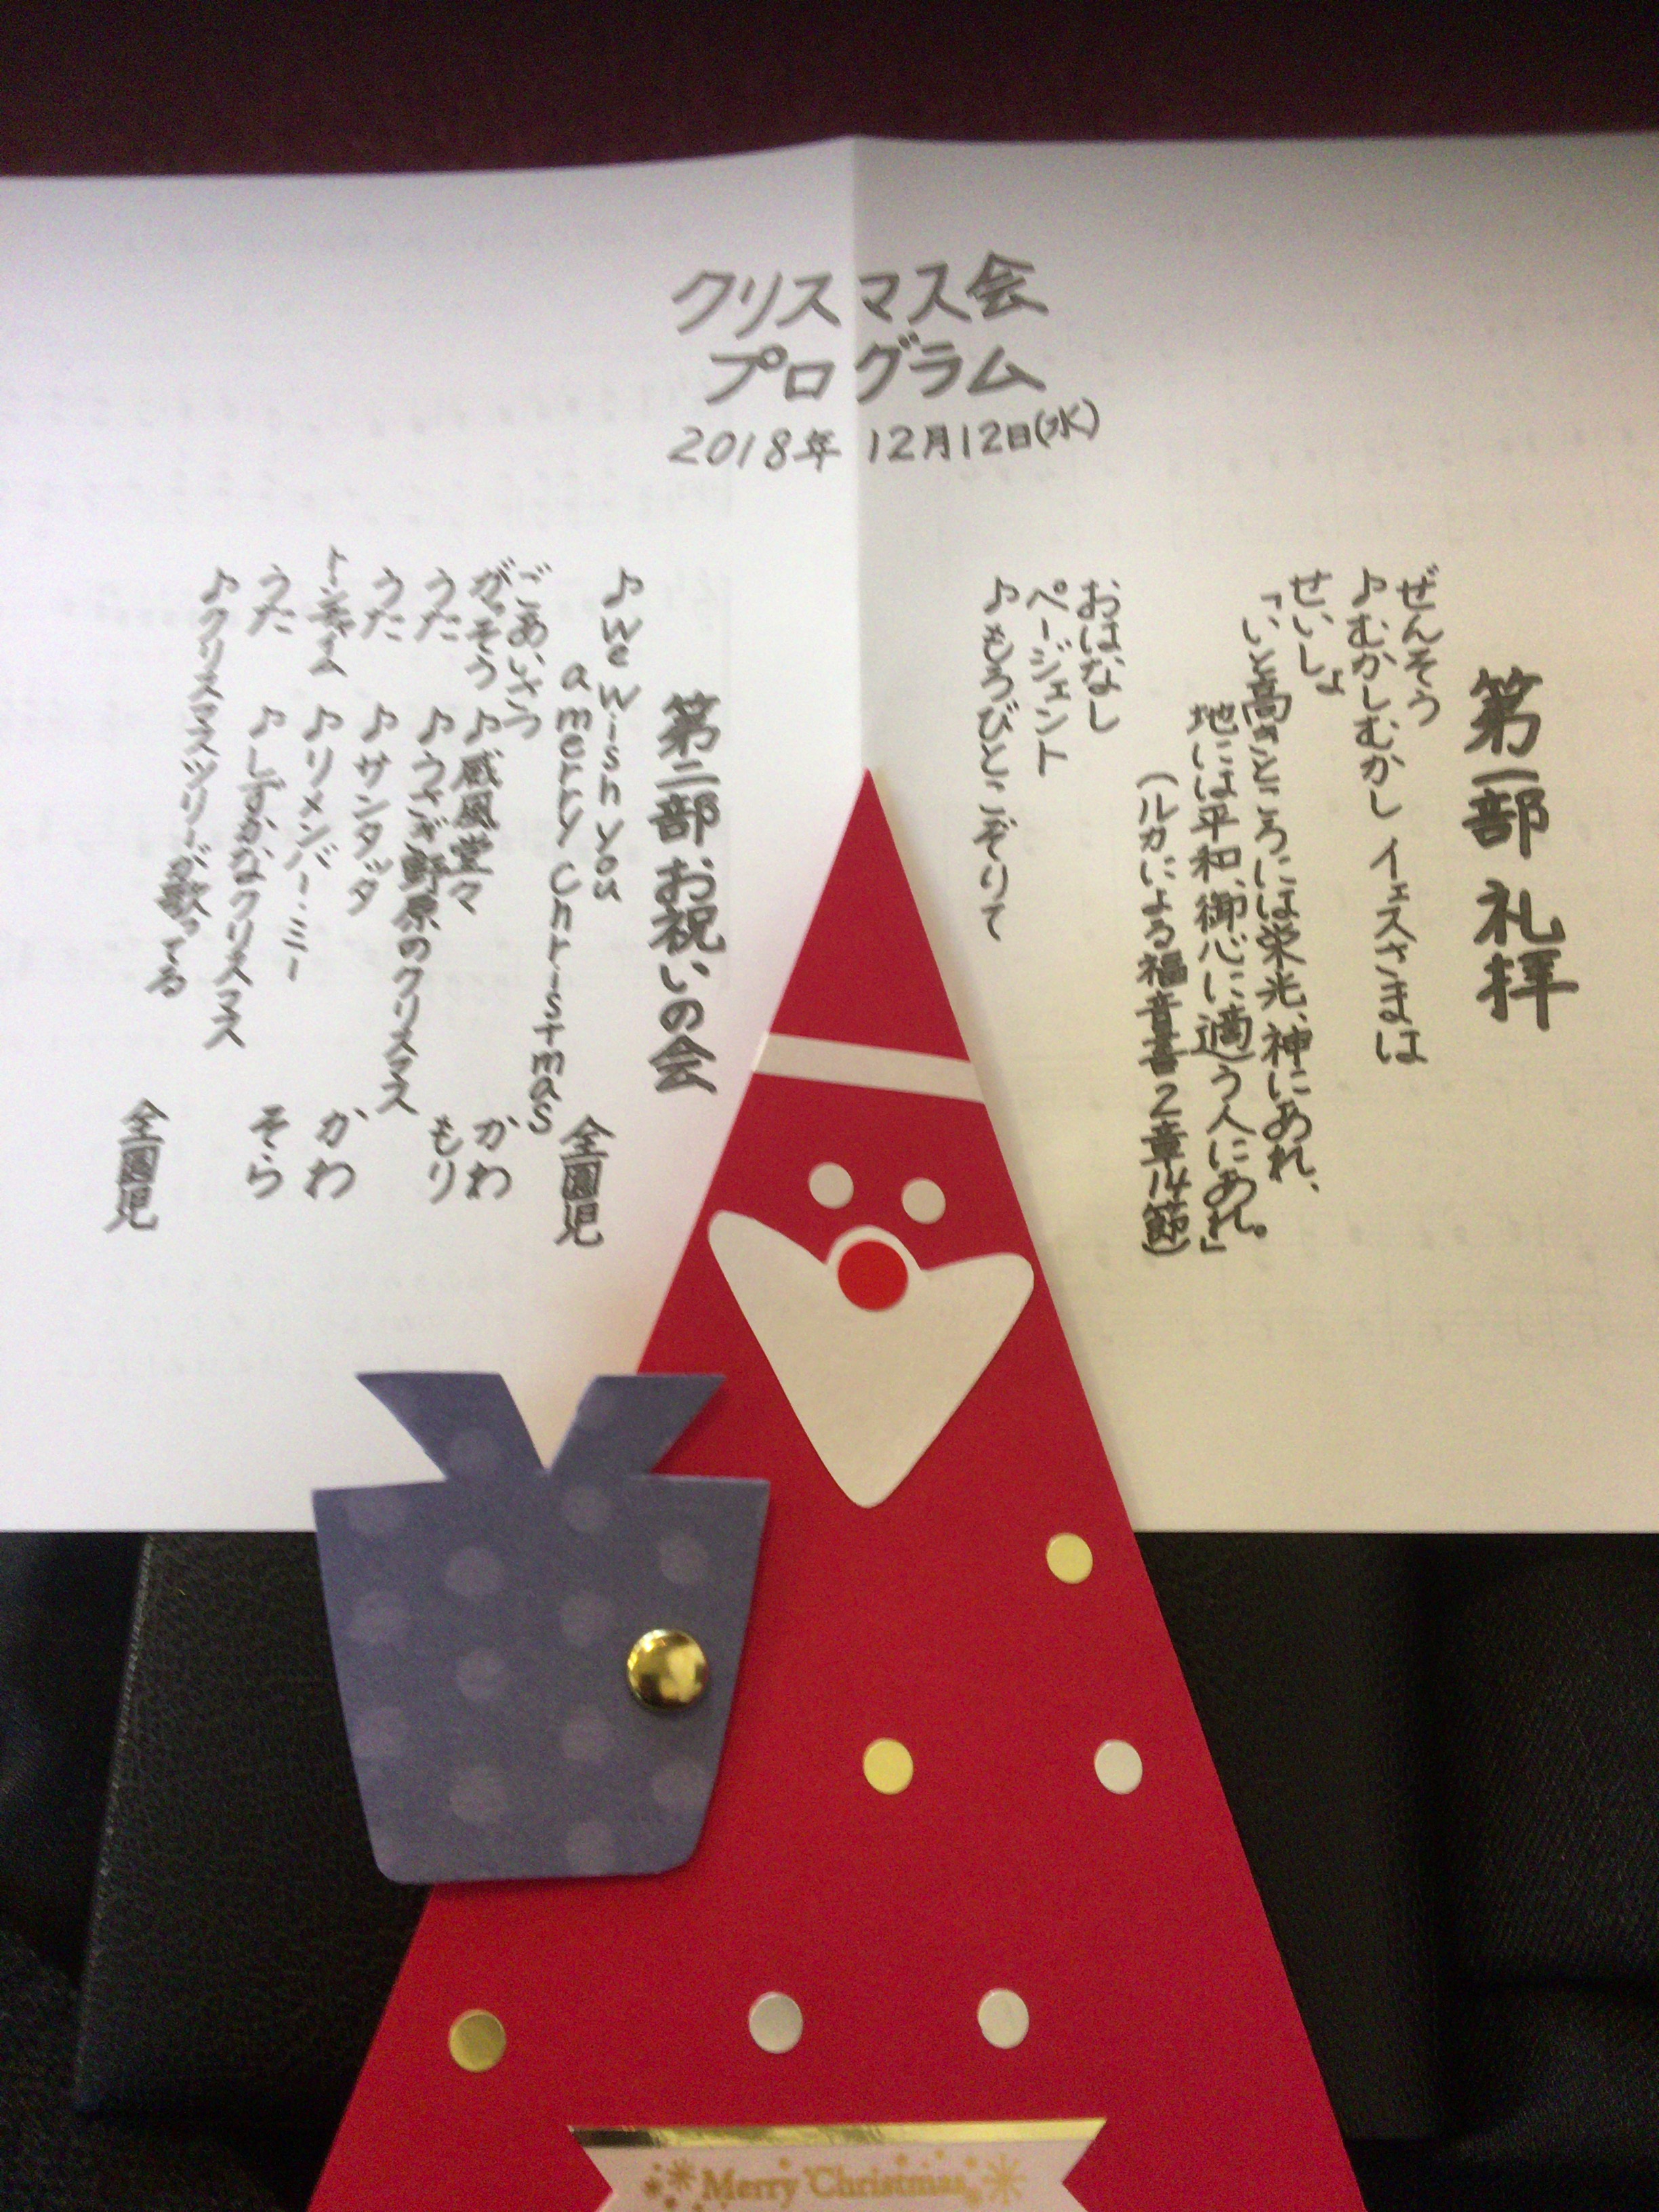 クリスマス会
プログラム
2018年 12月12日(水)
第一部 礼拝
ぜんそう
♪むかしむかし イエスさまは
せいしょ
「いと高きところには栄光、神にあれ、
地には平和、御心に適う人にあれ。」
(ルカによる福音書2章14節)
おはなし
ページェント
♪もろびとこぞりて
第二部 お祝いの会
♪we wish you
a merry christmas 全園児
ごあいさつ
がっそう ♪威風堂々 かわ
うた ♪うさぎ野原のクリスマス もり
うた ♪サンタダッダ
トーンチャイム ♪リメンバー・ミー かわ
うた ♪しずかなクリスマス そら
♪クリスマスツリーが歌ってる 全園児
Merry Christmas